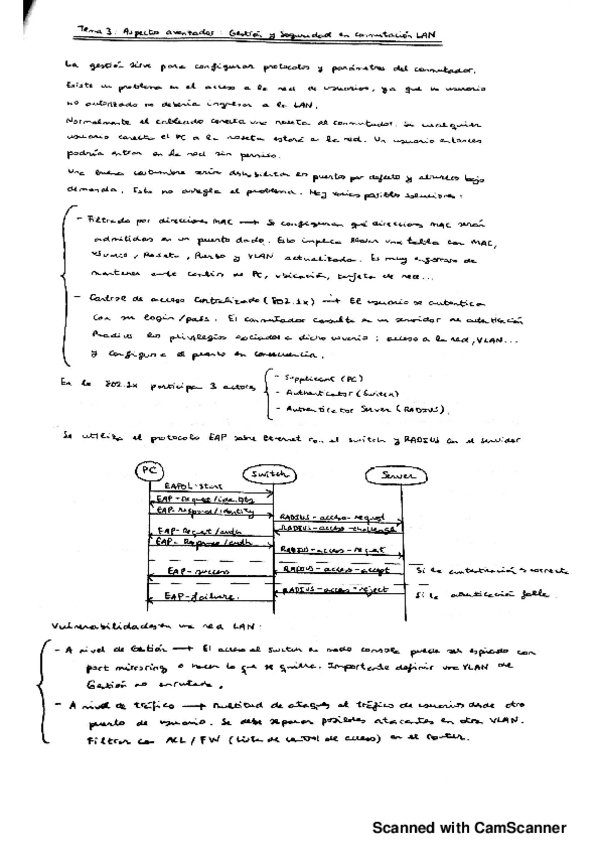 Tema 3: Aspectos avanzados: Gestión y Seguridad en conmutación LAN
La gestión sirve para configurar protocolos y parámetros del conmutador.
Existe un problema en el acceso a la red de usuarios, ya que un usuario
no autorizado no debería ingresar a la LAN.
Normalmente el cableado conecta una roseta al conmutador. Si cualquier
usuario conecta el PC a la roseta estará a la red. Un usuario entonces
podría entrar en la red sin permiso.
Una buena costumbre sería deshabilitar los puertos por defecto y abrirlos bajo
demanda. Esto no arregla el problema. Hay varias posibles soluciones:
- Filtrado por direcciones MAC → Se configuran qué direcciones MAC serán
admitidas en un puerto dado. Esto implica llevar una tabla con MAC,
Usuario, Roseta, Puerto y VLAN actualizada. Es muy engorroso de
mantener ante cambios de PC, ubicación, tarjeta de red...
- Control de acceso centralizado (802.1x) → El usuario se autentica
con su login/pass. El conmutador consulta en un servidor de autenticación
Radius los privilegios asociados a dicho usuario: acceso a la red, VLAN...
y configura el puerto en consecuencia.
En la 802.1x participan 3 actores
- Supplicant (PC)
- Authenticator (Switch)
- Authenticator Server (RADIUS).
Se utiliza el protocolo EAP sobre Ethernet con el switch y RADIUS con el servidor
PC Switch Server
EAPOL-Start
EAP-Request/identity
EAP-Respond/identity
RADIUS-access-request
RADIUS-access-challenge
EAP-Request/auth
EAP-Response/auth
RADIUS-access-request
EAP-success RADIUS-access-accept Si la autenticación es correcta
EAP-failure. RADIUS-access-reject Si la autenticación falla.
Vulnerabilidades en una red LAN:
- A nivel de Gestión → El acceso al switch en modo consola puede ser espiado con
port mirroring o hacer lo que se quiera. Importante definir una VLAN de
Gestión no enrutada.
- A nivel de tráfico → Multitud de ataques al tráfico de usuarios desde otro
puerto de usuario. Se debe separar posibles atacantes en otra VLAN.
Filtrar con ACL / FW (Lista de control de acceso) en el router.
Scanned with CamScanner